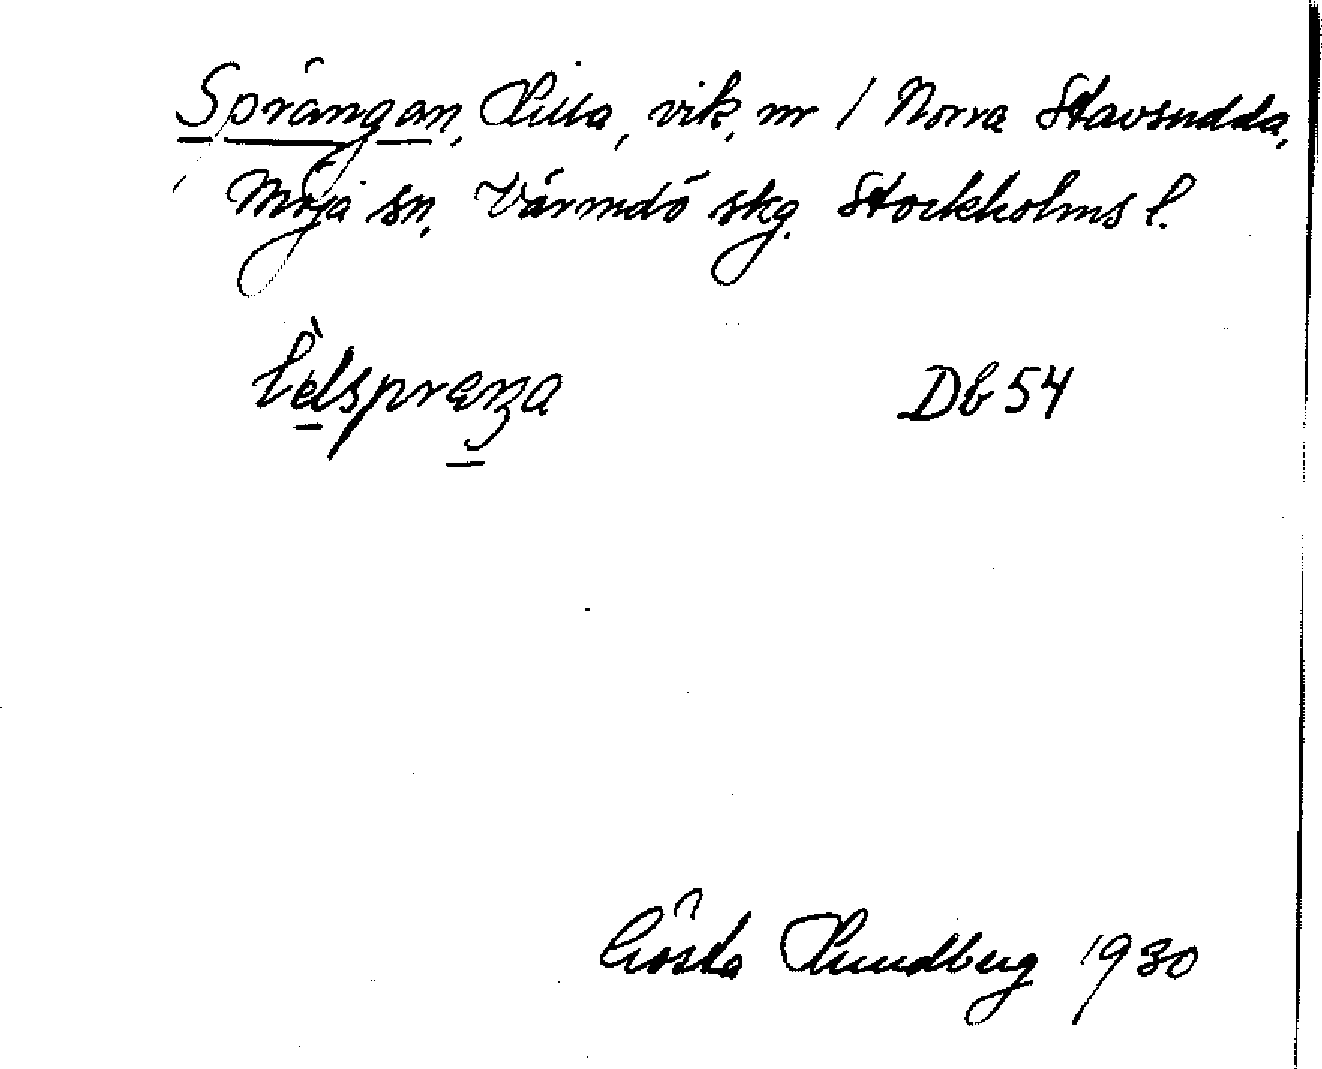 Sprängan, Lilla, vik, nr 1 Norra Stavsudda,
Möja sn, Värmdö skg. Stockholms l.
Db 54
Gösta Lundberg 1930